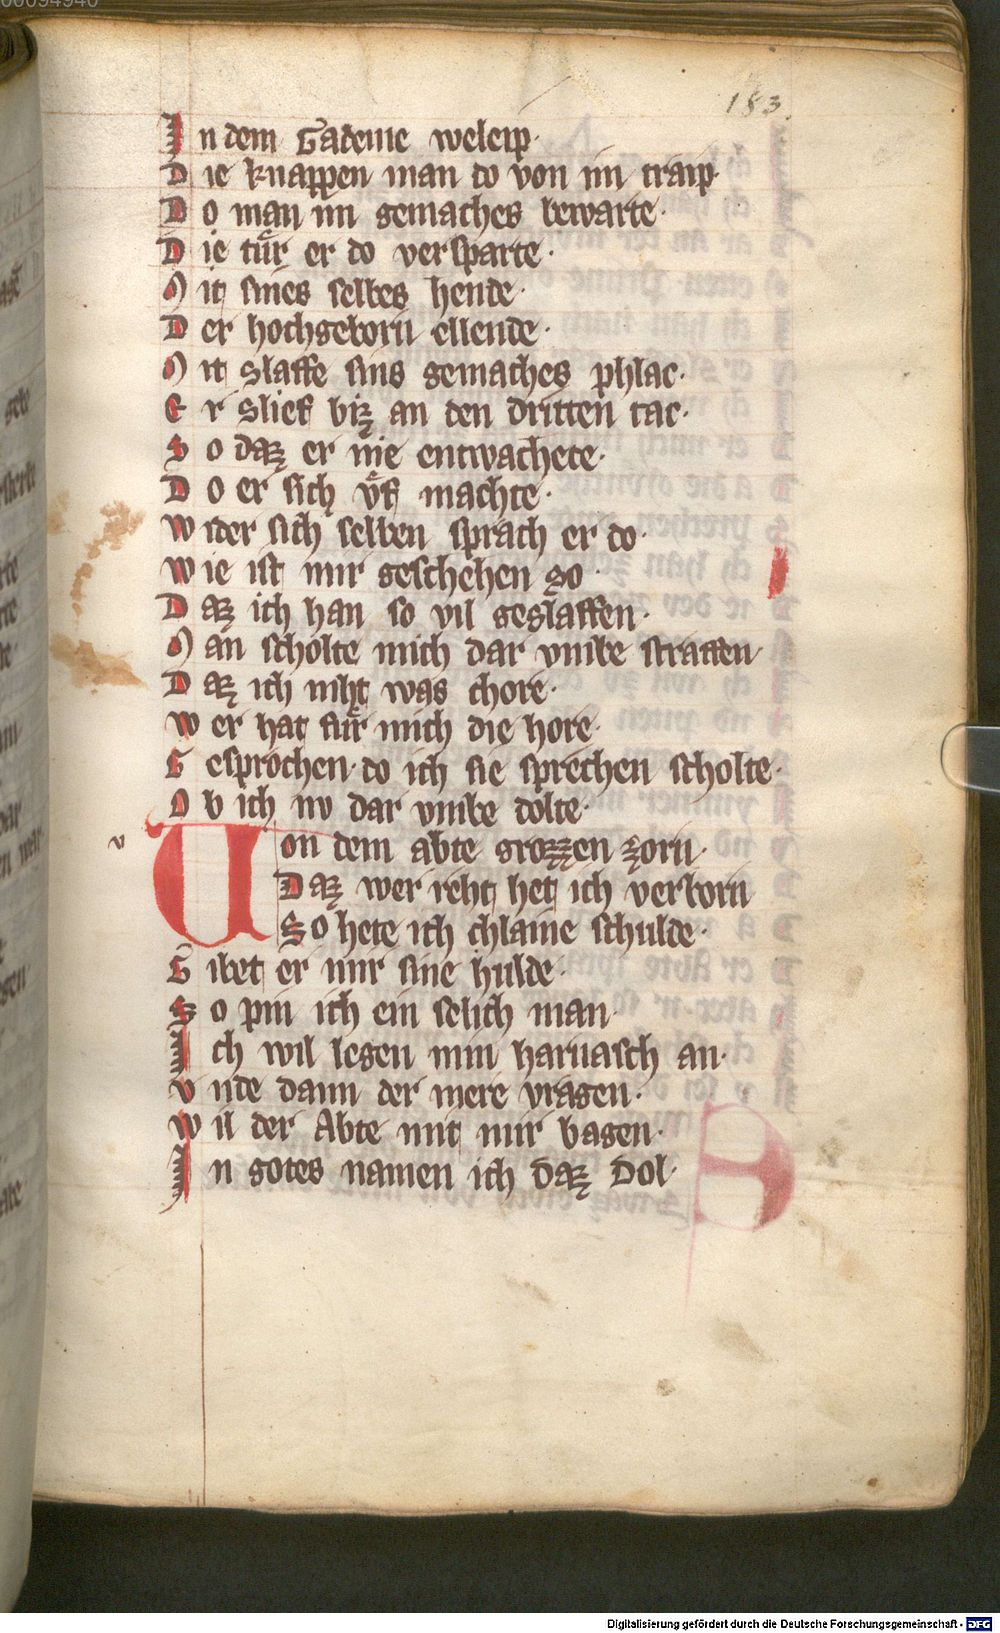 00094940
183.
In dem Gademe weleip·
Die knappen man do von im traip·
Do man im gemaches bewarte·
Die tuͤr er do versparte·
Mit sines selbes hende·
Der hochgeborn ellende·
Mit slaffe sins gemaches phlac·
Er slief biz an den dritten tac·
So daz er nie entwachete·
Do er sich vͦf machte·
Wider sich selben sprach er do·
Wie ist mir geschehen so·
Daz ich han so vil geslaffen·
Man scholte mich dar vmbe straffen·
Daz ich niht was chore·
Wer hat fuͤr mich die hore·
Gesprochen· do ich sie sprechen scholte·
Ob ich nv dar vmbe dolte·
v
Von dem abte grozzen zorn·
Daz wer reht het ich verborn
So hete ich chlaine schulde·
Gibet er mir sine hulde·
So pin ich ein selich man·
Ich wil legen min harnasch an·
Vnde dann der mere vragen·
Wil der Abte mit mir bagen·
In gotes namen ich daz dol·
Digitalisierung gefördert durch die Deutsche Forschungsgemeinschaft - DFG